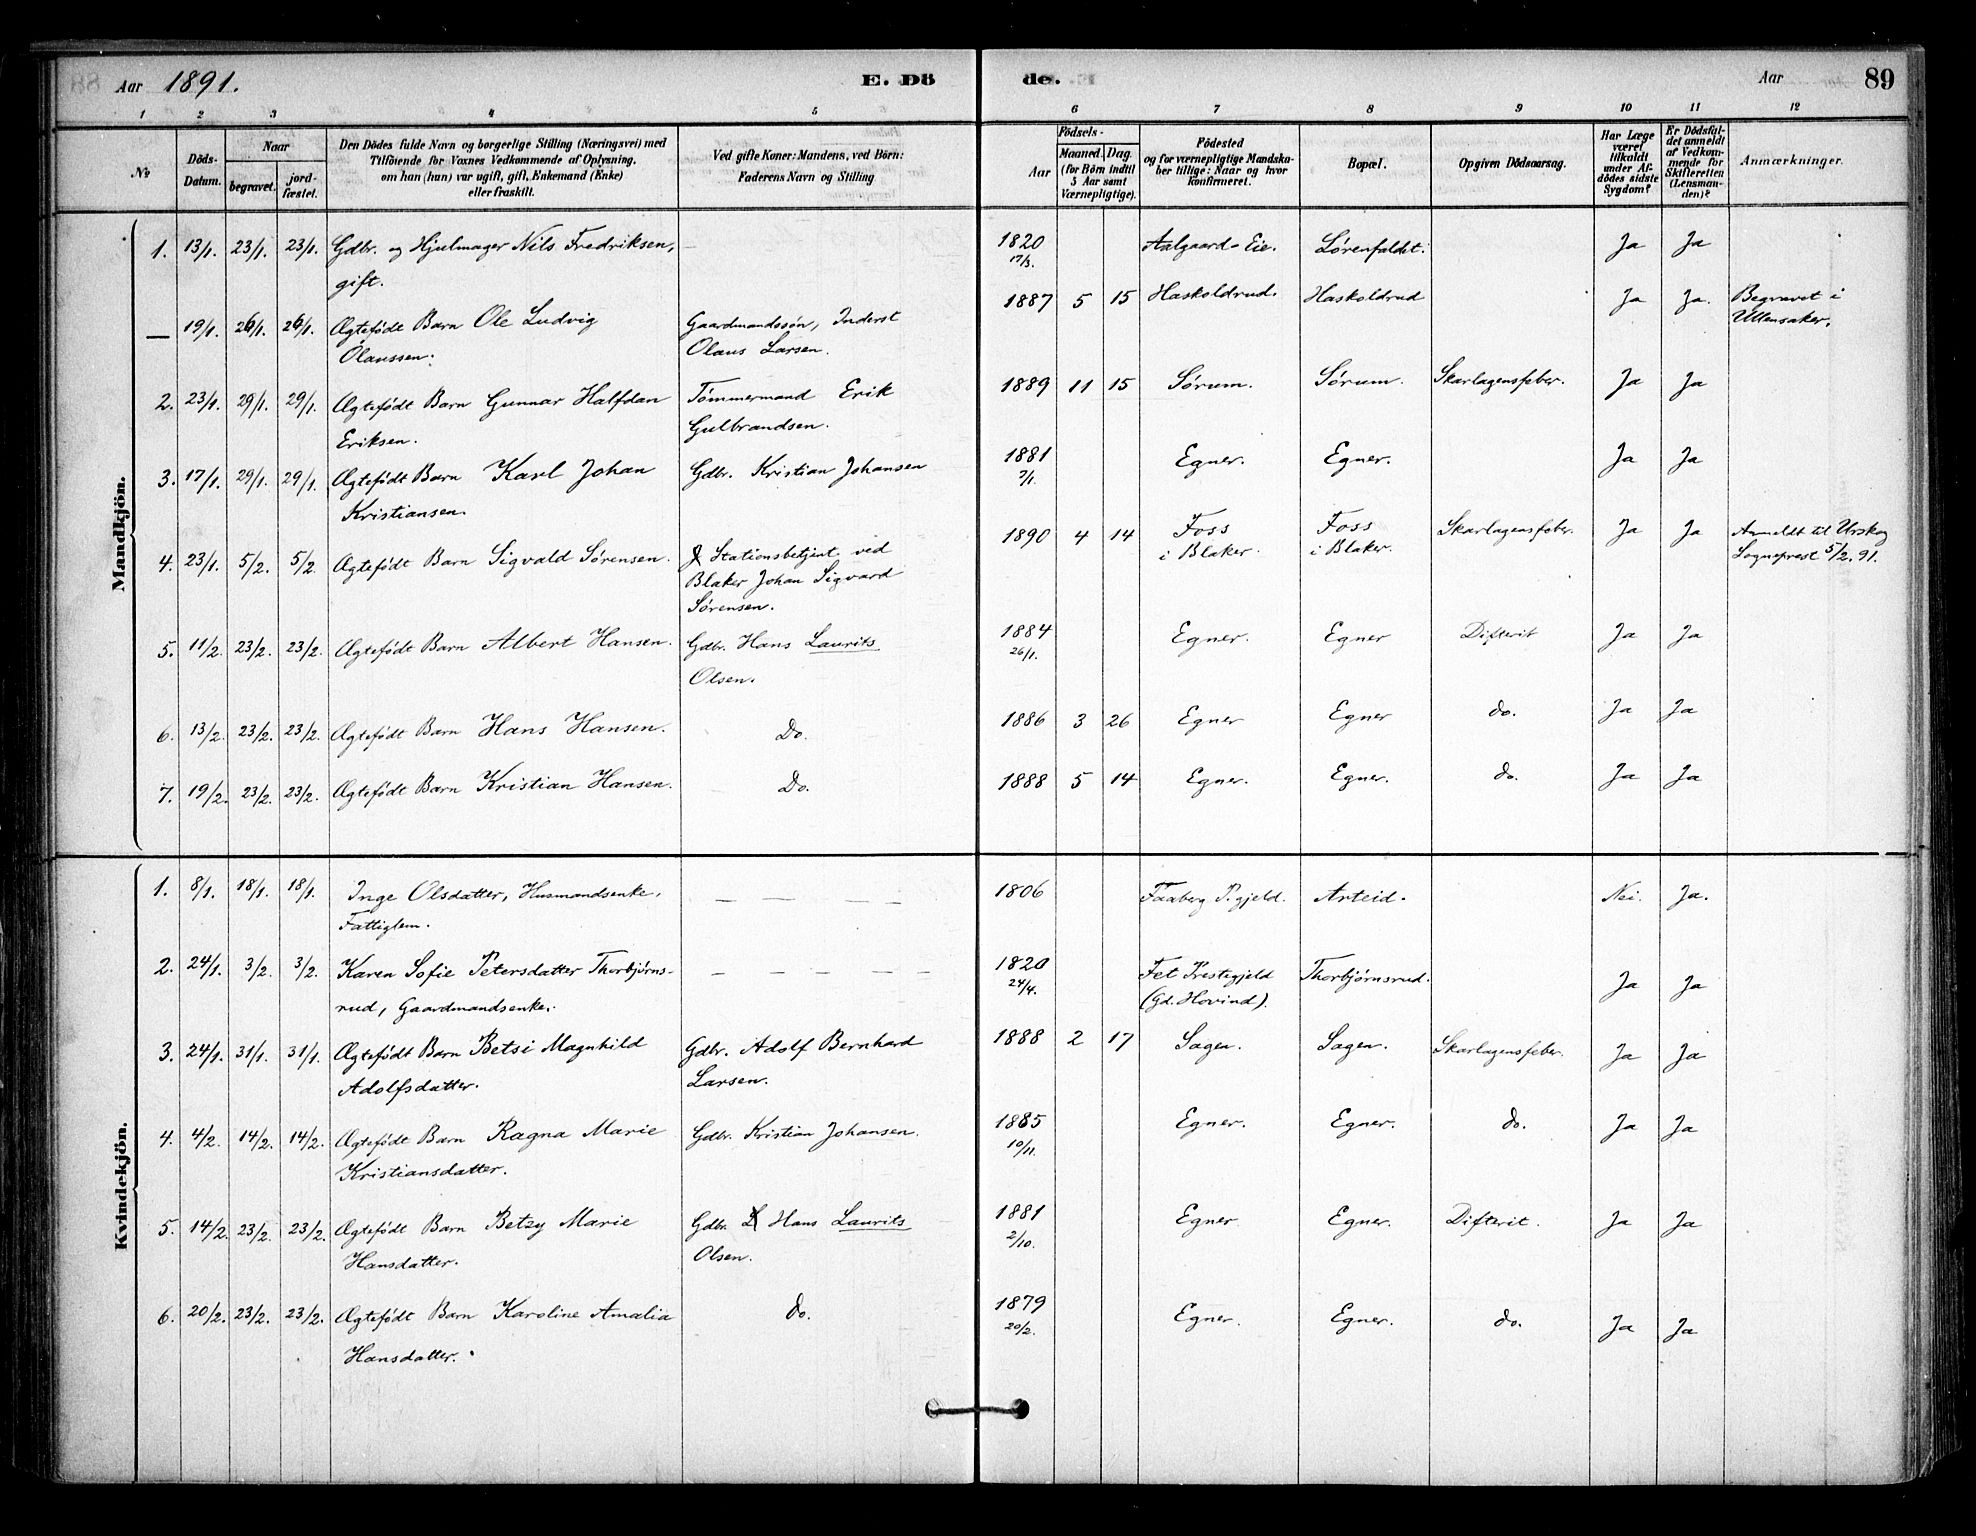 Aar 1891. E. Dö de. Aar 89
1 2 3 4 5 6 7 8 9 10 11 12
No
Döds-Datum.
Naar
begravet.
jord-fæstet.
Den Dödes fulde Navn og borgerlige Stilling (Næringsvei) med
Tilföiende for Voxnes Vedkommende af Oplysning,
om han (hun) var ugift, gift, Enkemand (Enke)
eller fraskilt.
Ved gifte Koner: Mandens, ved Börn:
Faderens Navn og Stilling
Födsels-
Aar
Maaned. Dag.
(for Börn indtil
5 Aar samt
Værnepligtige).
Födested
og for værnepligtige Mandska-
ber tillige: Naar og hvor
konfirmeret.
Bopæl.
Opgiven Dödsaarsag.
Har Læge
været
tilkaldt
under Af-
dödes sidste
Sygdom?
Er Dödsfal-
det anmeldt
af Vedkom-
mende for
Skifteretten
(Lensman-
den)?
Anmærkninger.
Mandkjön.
1. 13/1. 23/1. 23/1. Gdbr. og Hjulmager Nils Fredriksen, 1820 Aalgaard-Eie. Lørenfaldet. Ja Ja
gift. 17/3.
— 19/1. 26/1. 26/1. Ægtefødt Barn Ole Ludvig Gaardmandssøn, Inderst 1887 5 15 Haskoldrud. Haskoldrud Ja Ja. Begravet i
Olaussen. Olaus Larsen. Ullensaker.
2. 23/1. 29/1. 29/1. Ægtefødt Barn Gunnar Halfdan Tømmermand Erik 1889 11 15 Sørum. Sørum. Skarlagensfeber. Ja Ja
Eriksen. Gulbrandsen.
3. 17/1. 29/1. 29/1. Ægtefødt Barn Karl Johan Gdbr. Kristian Johansen 1881 Egner. Egner. Ja Ja
Kristiansen. 7/1.
4. 23/1. 5/2. 5/2. Ægtefødt Barn Sigvald Sørensen. Stationsbetjent ved 1890 4 14 Foss Foss Skarlagensfeber. Ja Ja Anmeldt til Urskog
Blaker Johan Sigvard i Blaker. i Blaker. Sogneprest 5/2. 91.
Sørensen.
5. 11/2. 23/2. 23/2. Ægtefødt Barn Albert Hansen. Gdbr. Hans Laurits 1884 Egner. Egner Difterit Ja Ja
Olsen. 26/1.
6. 13/2. 23/2. 23/2. Ægtefødt Barn Hans Hansen. Do. 1886 3 26 Egner Egner do. Ja Ja
7. 19/2. 23/2. 23/2. Ægtefødt Barn Kristian Hansen. Do. 1888 5 14 Egner. Egner. do. Ja Ja
Kvindekjön.
1. 8/1. 18/1. 18/1. Inge Olsdatter, Husmandsenke, — — — — 1806 Faaberg P.gjeld. Arteid. Nei. Ja.
Fattiglem.
2. 24/1. 3/2. 3/2. Karen Sofie Petersdatter Thorbjørns- — — — — — 1820 Fet Prestegjeld Thorbjørnsrud. Ja Ja
rud, Gaardmandsenke. 24/4. (Gd. Hovind).
3. 24/1. 31/1. 31/1. Ægtefødt Barn Betsi Magnhild Gdbr. Adolf Bernhard 1888 2 17 Sagen. Sagen. Skarlagensfeber. Ja Ja
Adolfsdatter. Larsen.
4. 4/2. 14/2. 14/2. Ægtefødt Barn Ragna Marie Gdbr. Kristian Johansen. 1885 Egner. Egner. do. Ja Ja
Kristiansdatter. 10/11.
5. 14/2. 23/2. 23/2. Ægtefødt Barn Betzy Marie Gdbr. Hans Laurits 1881 Egner. Egner. Difterit. Ja Ja
Hansdatter. Olsen. 2/10.
6. 20/2. 23/2. 23/2. Ægtefødt Barn Karoline Amalia do. 1879 Egner. Egner. do. Ja Ja
Hansdatter. 20/2.